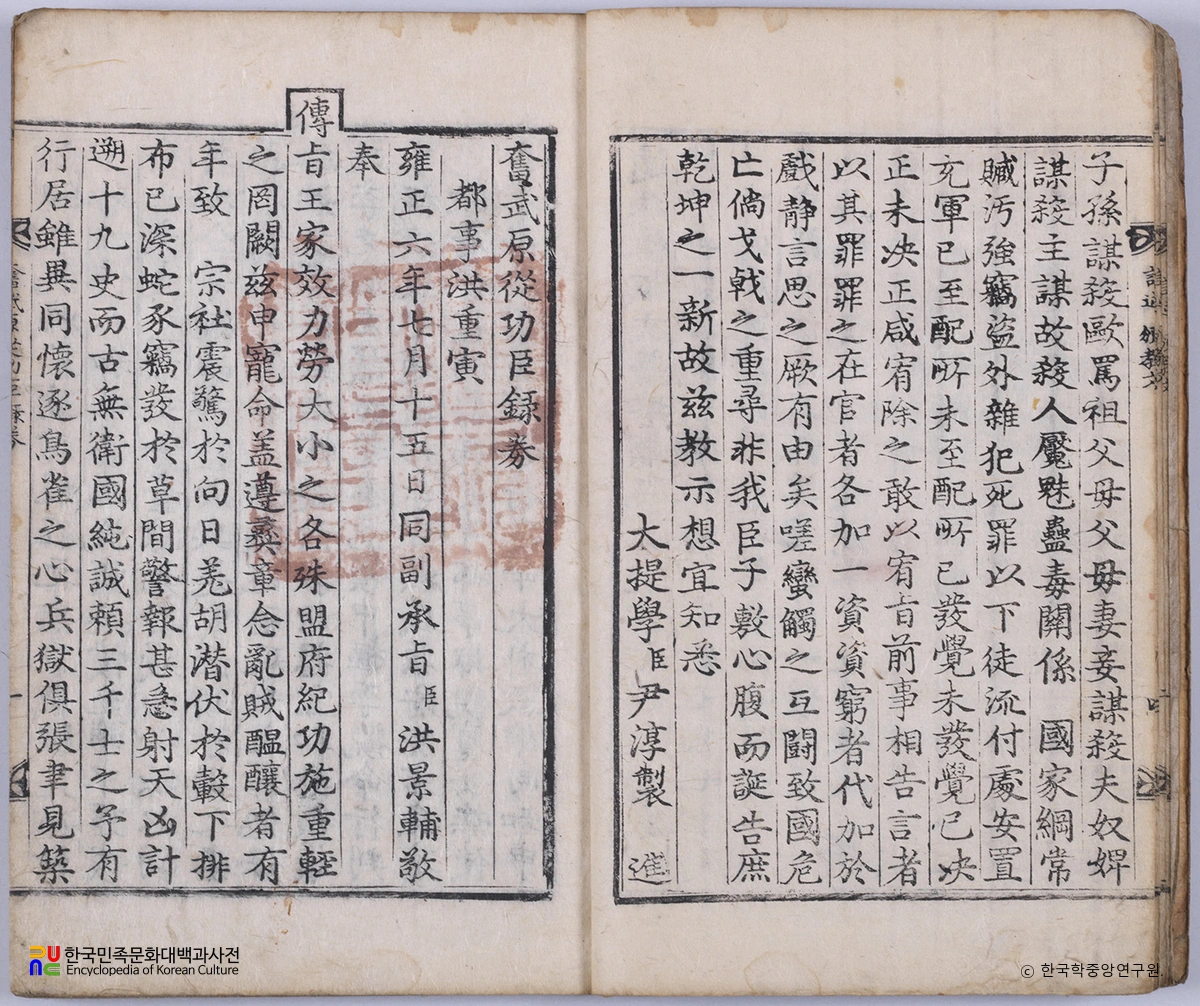 子孫謀殺毆罵祖父母父母妻妾謀殺夫奴婢
謀殺主謀故殺人魘魅蠱毒關係 國家綱常
贓汚強竊盜外雜犯死罪以下徒流付處安置
充軍已至配所未至配所已發覺未發覺已决
正未决正咸宥除之敢以宥旨前事相告言者
以其罪罪之在官者各加一資資窮者代加於
戲静言思之厥有由矣嗟蠻觸之互鬪致國危
亡倘戈戟之重尋非我臣子敷心腹而誕告庶
乾坤之一新故茲教示想宜知悉
大提學臣尹淳製 進
奮武原從功臣録券
都事洪重寅
雍正六年七月十五日同副承旨臣洪景輔敬
奉
傳旨王家效力勞大小之各殊盟府紀功施重輕
之罔闕玆申寵命盖遵彛章念亂賊醞釀者有
年致 宗社震驚於向日羌胡潜伏於轂下排
布已深蛇豕竊發於草間警報甚急射天凶計
遡十九史而古無衛國純誠頼三千士之予有
行居雖異同懷逐鳥雀之心兵獄俱張聿見築
한국민족문화대백과사전
Encyclopedia of Korean Culture
ⓒ 한국학중앙연구원.